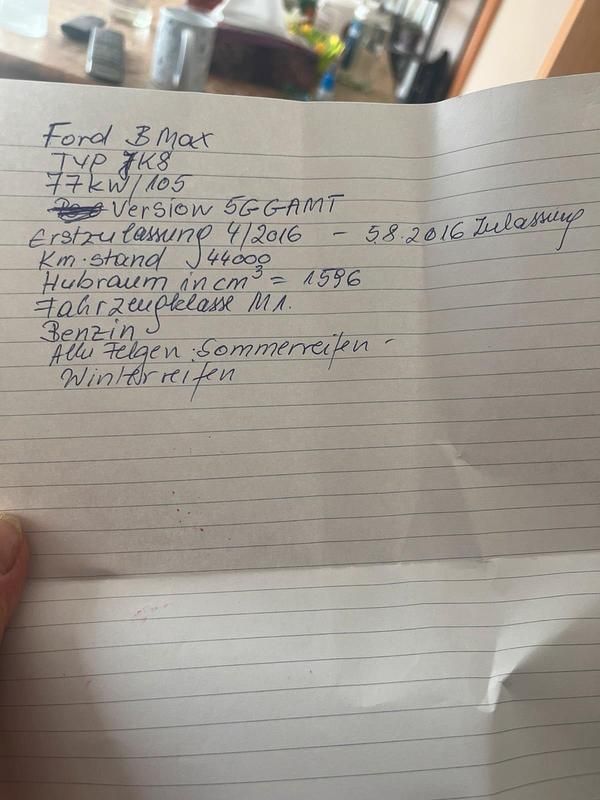 Ford B Max
TYP JK8
77KW/105
Version 5GGAMT
Erstzulassung 4/2016 - 5.8.2016 Zulassung
Km.stand 44000
Hubraum in cm³ = 1596
Fahrzeugklasse M1.
Benzin
Alu Felgen: Sommerreifen -
Winterreifen